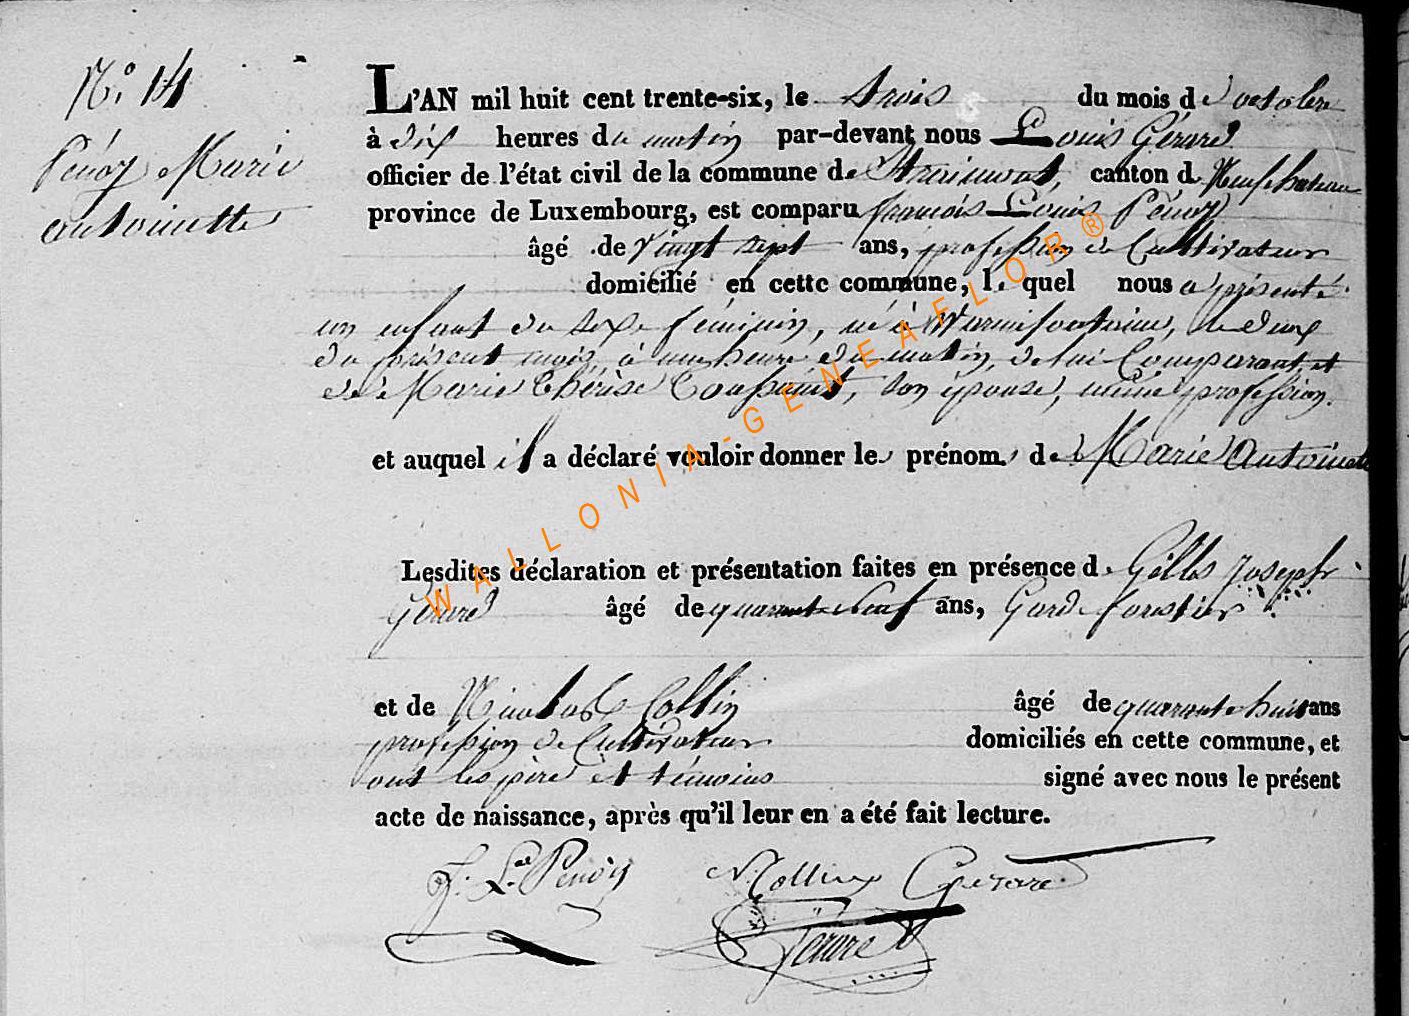 N.° 14
Penoy Marie
antoinette
L'AN mil huit cent trente-six, le trois du mois de octobre
à dix heures du matin par-devant nous Louis Gérard
officier de l'état civil de la commune de Straimont, canton de Neufchateau
province de Luxembourg, est comparu françois Louis Penoy
âgé de vingt sept ans, profession de Cultivateur
domicilié en cette commune, lequel nous a présenté
un enfant du sexe féminin, né à Warmifontaine, le deux
du présent mois, à une heure du matin, de lui Comparant, et
de Marie Thérèse son épouse, même profession.
et auquel il a déclaré vouloir donner le prénom de Marie Antoinette
Lesdites déclaration et présentation faites en présence de Gilles Joseph
Gérard âgé de quarante neuf ans, Garde forestier
et de Nicolas Collin âgé de quarante huit ans
profession de Cultivateur domiciliés en cette commune, et
ont les père et témoins signé avec nous le présent
acte de naissance, après qu'il leur en a été fait lecture.
f. L. Penoy N. Collin Gerard
Gérard
WALLONIA-GENEAFLOR®